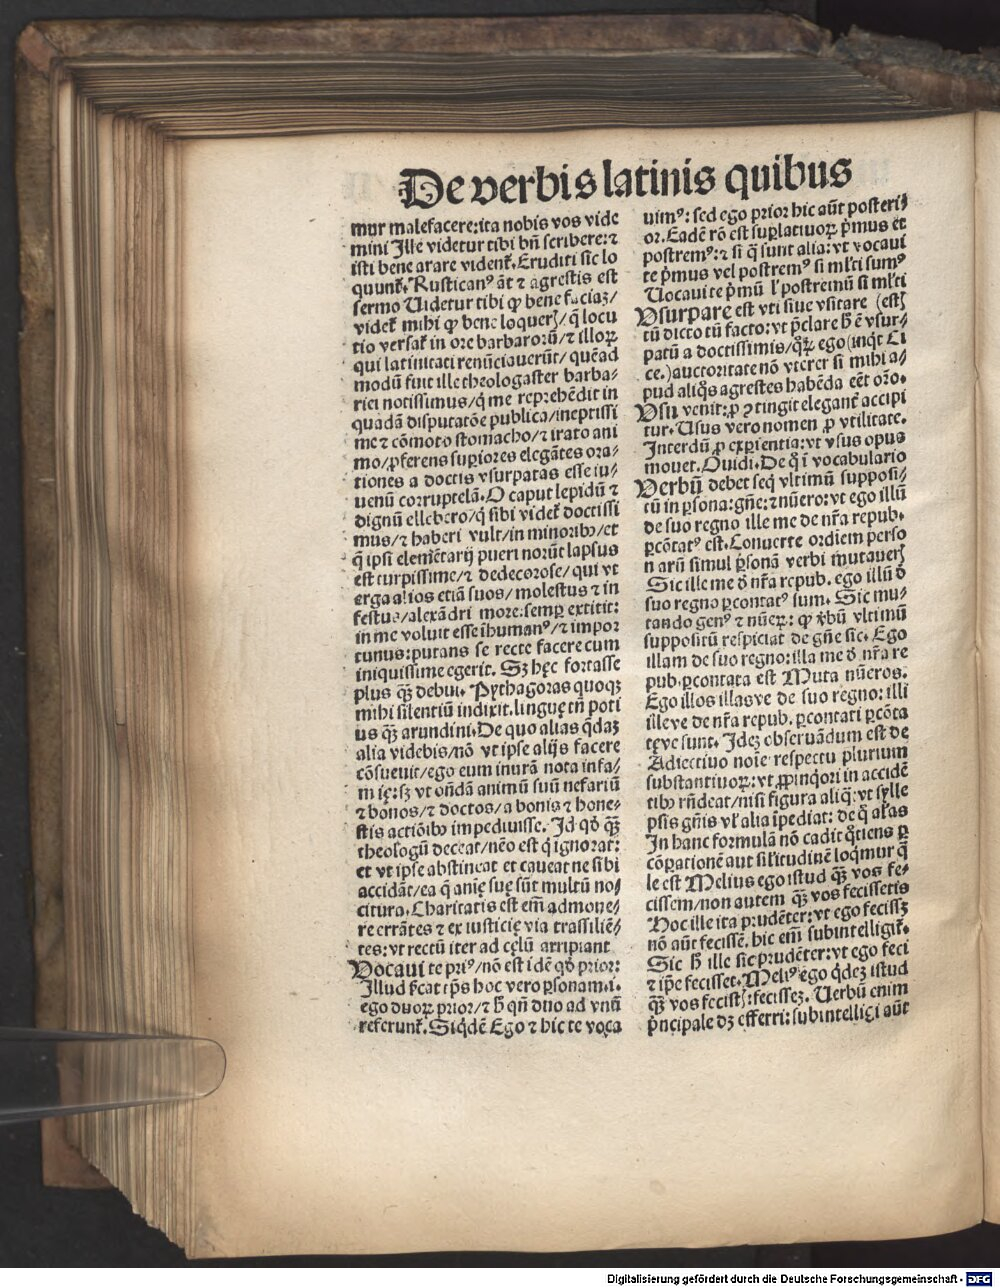 De verbis latinis quibus
mur malefacere: ita nobis vos vide
mini Ille videtur tibi bñ scribere: ⁊
isti bene arare vident᷑. Eruditi sic lo
quunt᷑. Rusticanꝰ aūt ⁊ agrestis est
sermo Uidetur tibi ꝙ bene faciaꝫ/
videt᷑ mihi ꝙ bene loquer/ q̄ locu
tio versat᷑ in ore barbarorū/ ⁊ illoꝝ
qui latinitati renūciauerūt/ quēad
modū fuit ille theologaster barba-
riei notissimus/ q́ me reprehēdit in
quadā disputatōe publica/ ineptissi
me ⁊ cōmoto stomacho/ ⁊ irato ani
mo/ ꝓferens suꝑiores elegātes ora/
tiones a doctis vsurpatas esse iu/
uenū corruptelā. O caput lepidū ⁊
dignū elleboro/ q́ sibi videt᷑ doctissi
mus/ ⁊ haberi vult/ in minoribꝰ/ et
q̄ ipsi elemētarij pueri norūt lapsus
est turpissime/ ⁊ dedecorose/ qui vt
erga alios etiā suos/ molestus ⁊ in
festus/ alexādri more: semꝑ extitit:
in me voluit esse īhumanꝰ/ ⁊ impor
tunus: putans se recte facere cum
iniquissime egerit. Sꝫ hęc fortasse
plus q̄ꝫ debui. Pythagoras quoqꝫ
mihi silentiū indixit. linguę tn̄ poti
us q̄ꝫ arundini. De quo alias q̄daꝫ
alia videbis/ nō vt ipse alijs facere
cōsueuit/ ego eum inurā nota infa/
mię: sꝫ vt ondā animū suū nefariū
⁊ bonos/ ⁊ doctos/ a bonis ⁊ hone-
stis actiōibꝰ impediuisse. Id qd́ q̄ꝫ
theologū deceat/ nēo est q́ ignorat:
et vt ipse abstineat et caueat ne sibi
accidāt/ ea q̄ anię suę sūt multū no/
citura. Charitatis est em̄ admone/
re errātes ⁊ ex iusticię via trassiliē/
tes: vt rectū iter ad cęlū arripiant
Vocaui te priꝰ/ nō est idē qd́ prior:
Illud ſcat tꝑs hoc vero ꝑsonam. i.
ego duoꝝ prior/ ⁊ h̄ qn̄ duo ad vnū
referunt᷑. Siq́dē Ego ⁊ hic te voca
uimꝰ: sed ego prior hic aūt posteri/
or. Eadē rō est suꝑlatiuoꝝ pꝛ̄mus et
postremꝰ: ⁊ si q̄ sunt alia: vt vocaui
te p̄mus vel postremꝰ si ml̄ti sumꝰ
Uocaui te p̄mū l̓ postremū si ml̄ti
Vsurpare est vti siue vsitare (est)
tū dicto tū facto: vt p̄clare h̄ ē vsur/
patū a doctissimis/ q̄ꝝ ego (inq́t Ci
ce.) auctoritate nō vterer si mihi a/
pud aliq̊s agrestes habēda eēt oŕo.
Vsu venit: ꝓ ꝯtingit elegant᷑ accipi
tur. Usus vero nomen ꝓ vtilitate.
Interdū ꝓ exꝑientia: vt vsus opus
mouet. Ouidi. De q̊ ī vocabulario
Verbū debet seq́ vltimū supposi/
tū in ꝑsona: gñe: ⁊ nūero: vt ego illū
de suo regno ille me de nr̄a repub.
ꝑcōtatꝰ est. Conuerte ordiem perso
narū simul ꝑsonā verbi mutauer
Sic ille me ď nr̄a repub. ego illū ď
suo regno ꝑcontatꝰ sum. Sic mu/
tando genꝰ ⁊ nūeꝝ: ꝙ v̓bū vltimū
suppositū respiciat de gñe sic. Ego
illam de suo regno: illa me ď nr̄a re
pub. ꝑcontata est Muta nūeros.
Ego illos illasve de suo regno: illi
illeve de nr̄a repub. ꝑcontati ꝑcōta
tęve sunt. Ideꝫ obseruādum est de
Adiectiuo noīe respectu plurium
substantiuoꝝ: vt ꝓpinq̊ori in accidē
tibꝰ rn̄deat/ nisi figura aliq̄: vt sylle
psis gñis vl̓ alia īpediat: de q̊ al̓as
In hanc formulā nō cadit q̊tiens ꝑ
cōꝑationē aut sil̓itudinē loq́mur q̄
le est Melius ego istud q̄ꝫ vos fe/
cissem/ non autem q̄ꝫ vos fecissetis
Hoc ille ita prudēter: vt ego fecissꝫ
nō aūt fecissē. hic em̄ subintelligit᷑.
Sic h̄ ille sic prudēter: vt ego feci
⁊ ip̄e fecisset. Meliꝰ ego q́deꝫ istud
q̄ꝫ vos fecist: fecisseꝫ. Uerbū enim
p̄ncipale dꝫ efferri: subintelligi aūt
Digitalisierung gefördert durch die Deutsche Forschungsgemeinschaft - DFG